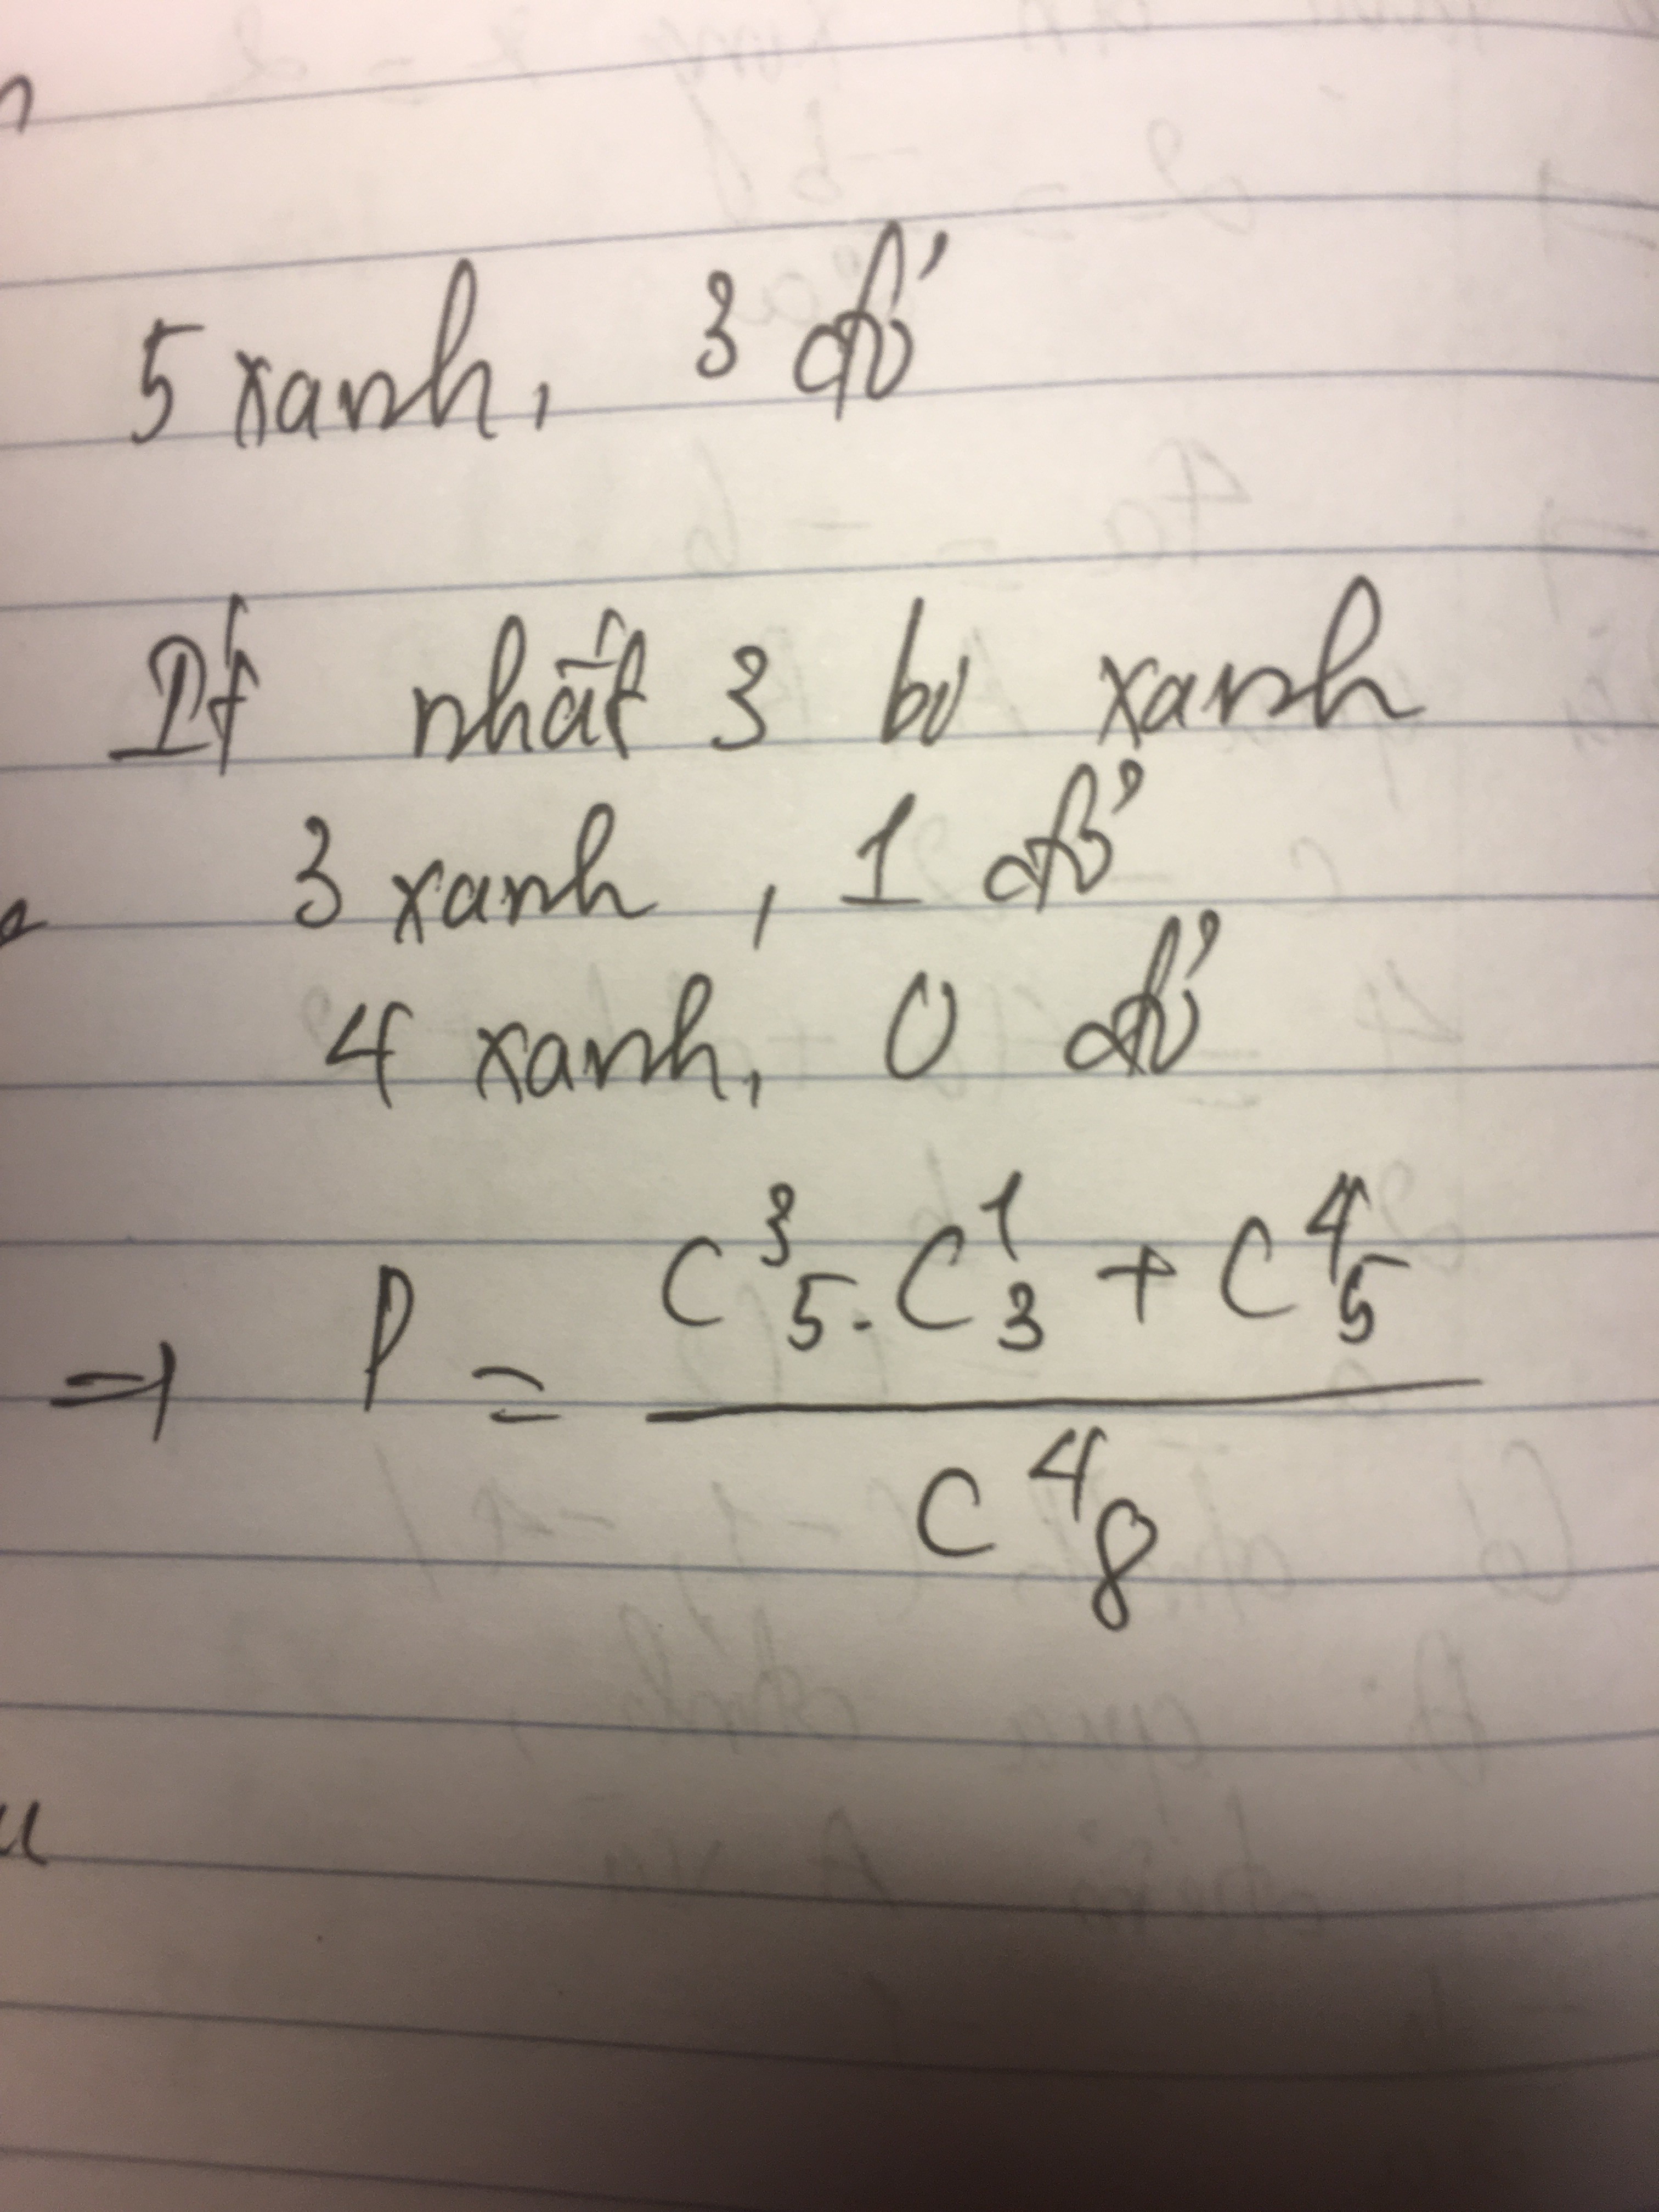 5 xanh, 3 đỏ
Ít nhất 3 bi xanh
3 xanh, 1 đỏ
4 xanh, 0 đỏ
⇒ P = (C³₅ . C¹₃ + C⁴₅) / C⁴₈